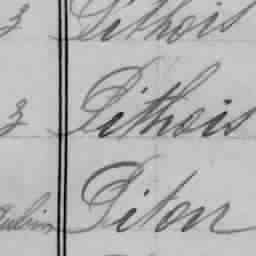 3 Pithois
3 Pithois
Aubin Piton